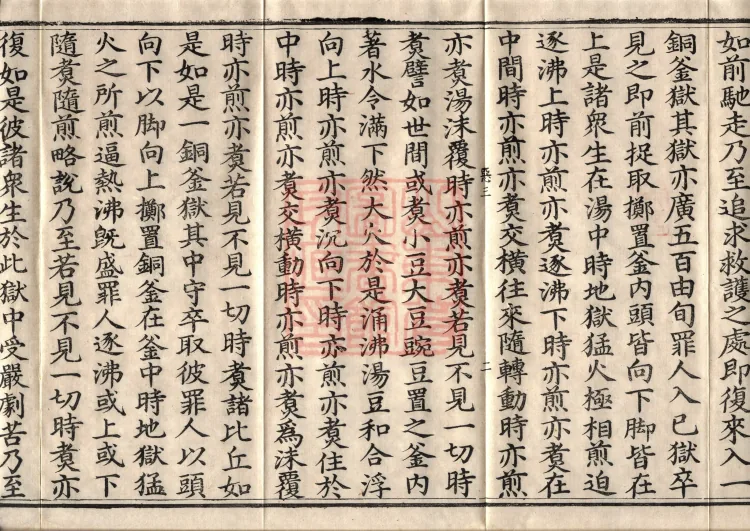 如前馳走乃至追求救護之處即復來入一
銅釜獄其獄亦廣五百由旬罪人入已獄卒
見之即前捉取擲置釜内頭皆向下脚皆在
上是諸衆生在湯中時地獄猛火極相煎迫
逐沸上時亦煎亦煑逐沸下時亦煎亦煑在
中間時亦煎亦煑交橫往來隨轉動時亦煎
㢲三 二
亦煑湯沫覆時亦煎亦煑若見不見一切時
煑譬如世間或煑小豆大豆豌豆置之釜内
著水令滿下然大火於是涌沸湯豆和合浮
向上時亦煎亦煑沉向下時亦煎亦煑住於
中時亦煎亦煑交橫動時亦煎亦煑爲沫覆
時亦煎亦煑若見不見一切時煑諸比丘如
是如是一銅釜獄其中守卒取彼罪人以頭
向下以脚向上擲置銅釜在釜中時地獄猛
火之所煎逼熱沸旣盛罪人逐沸或上或下
隨煑隨煎略說乃至若見不見一切時煑亦
復如是彼諸衆生於此獄中受嚴劇苦乃至